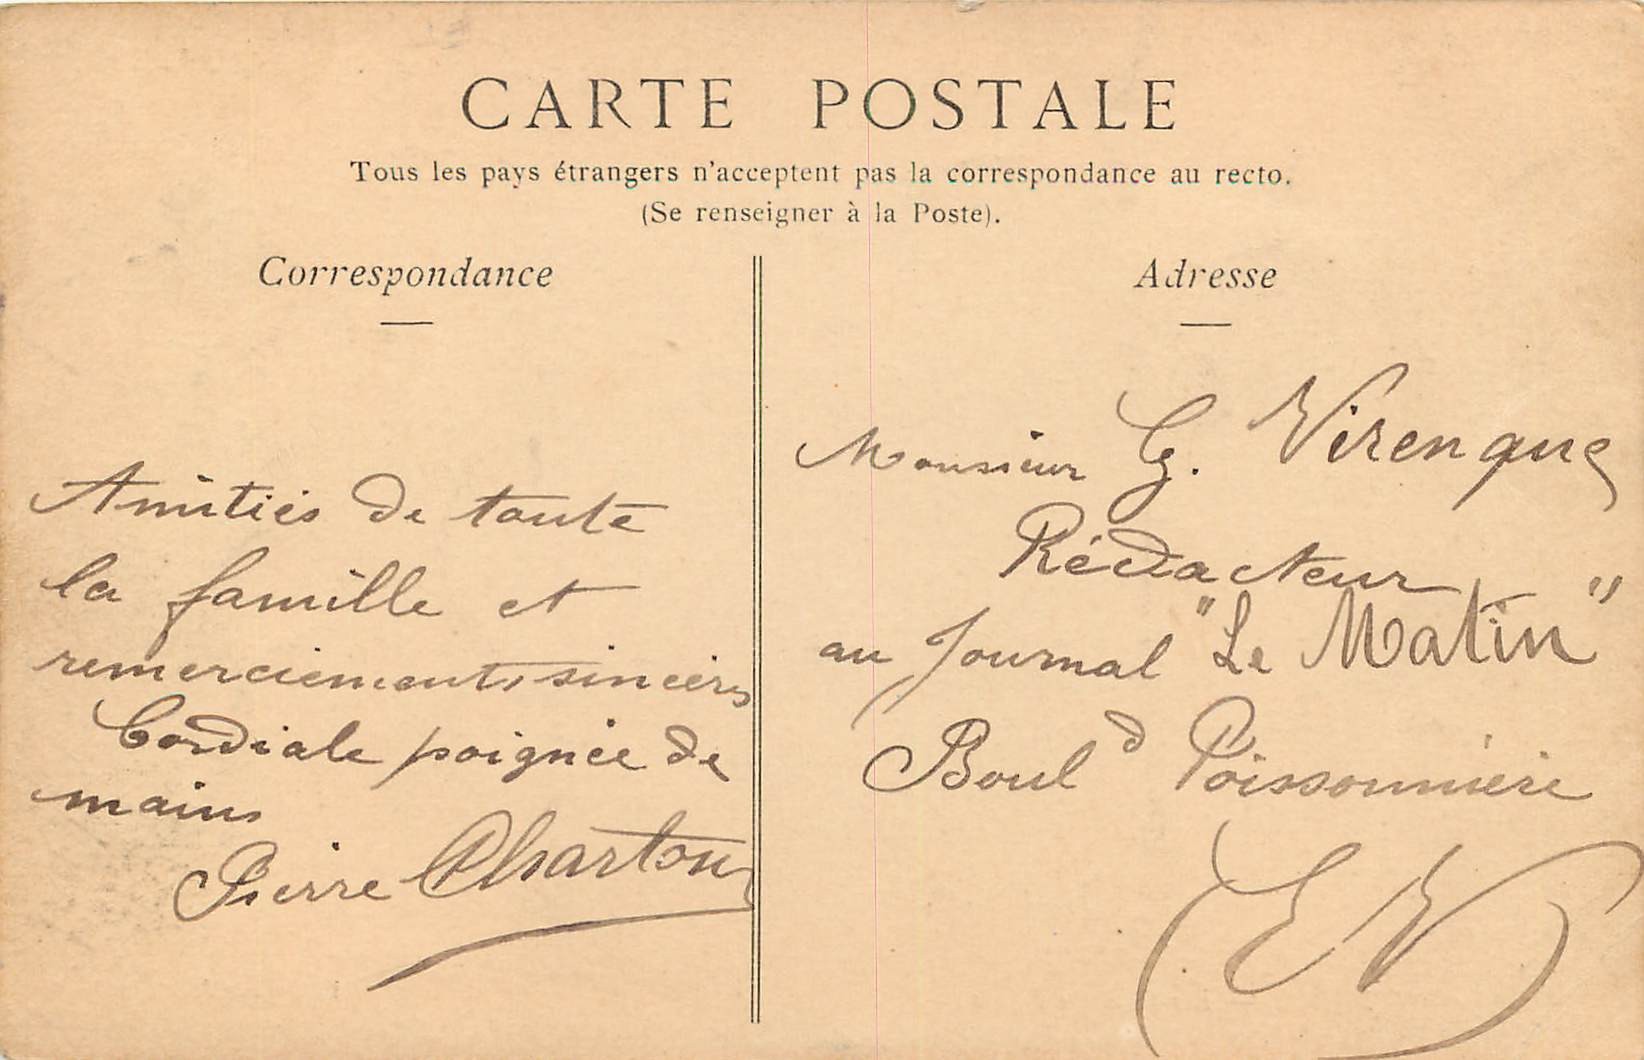 CARTE POSTALE
Tous les pays étrangers n'acceptent pas la correspondance au recto.
(Se renseigner à la Poste).
Correspondance
Amitiés de toute
la famille et
remerciements sincères
Cordiale poignée de
mains
Pierre Charton
Adresse
Monsieur G. Virenque
Rédacteur
au Journal "Le Matin"
Boul d Poissonnière
(EV)